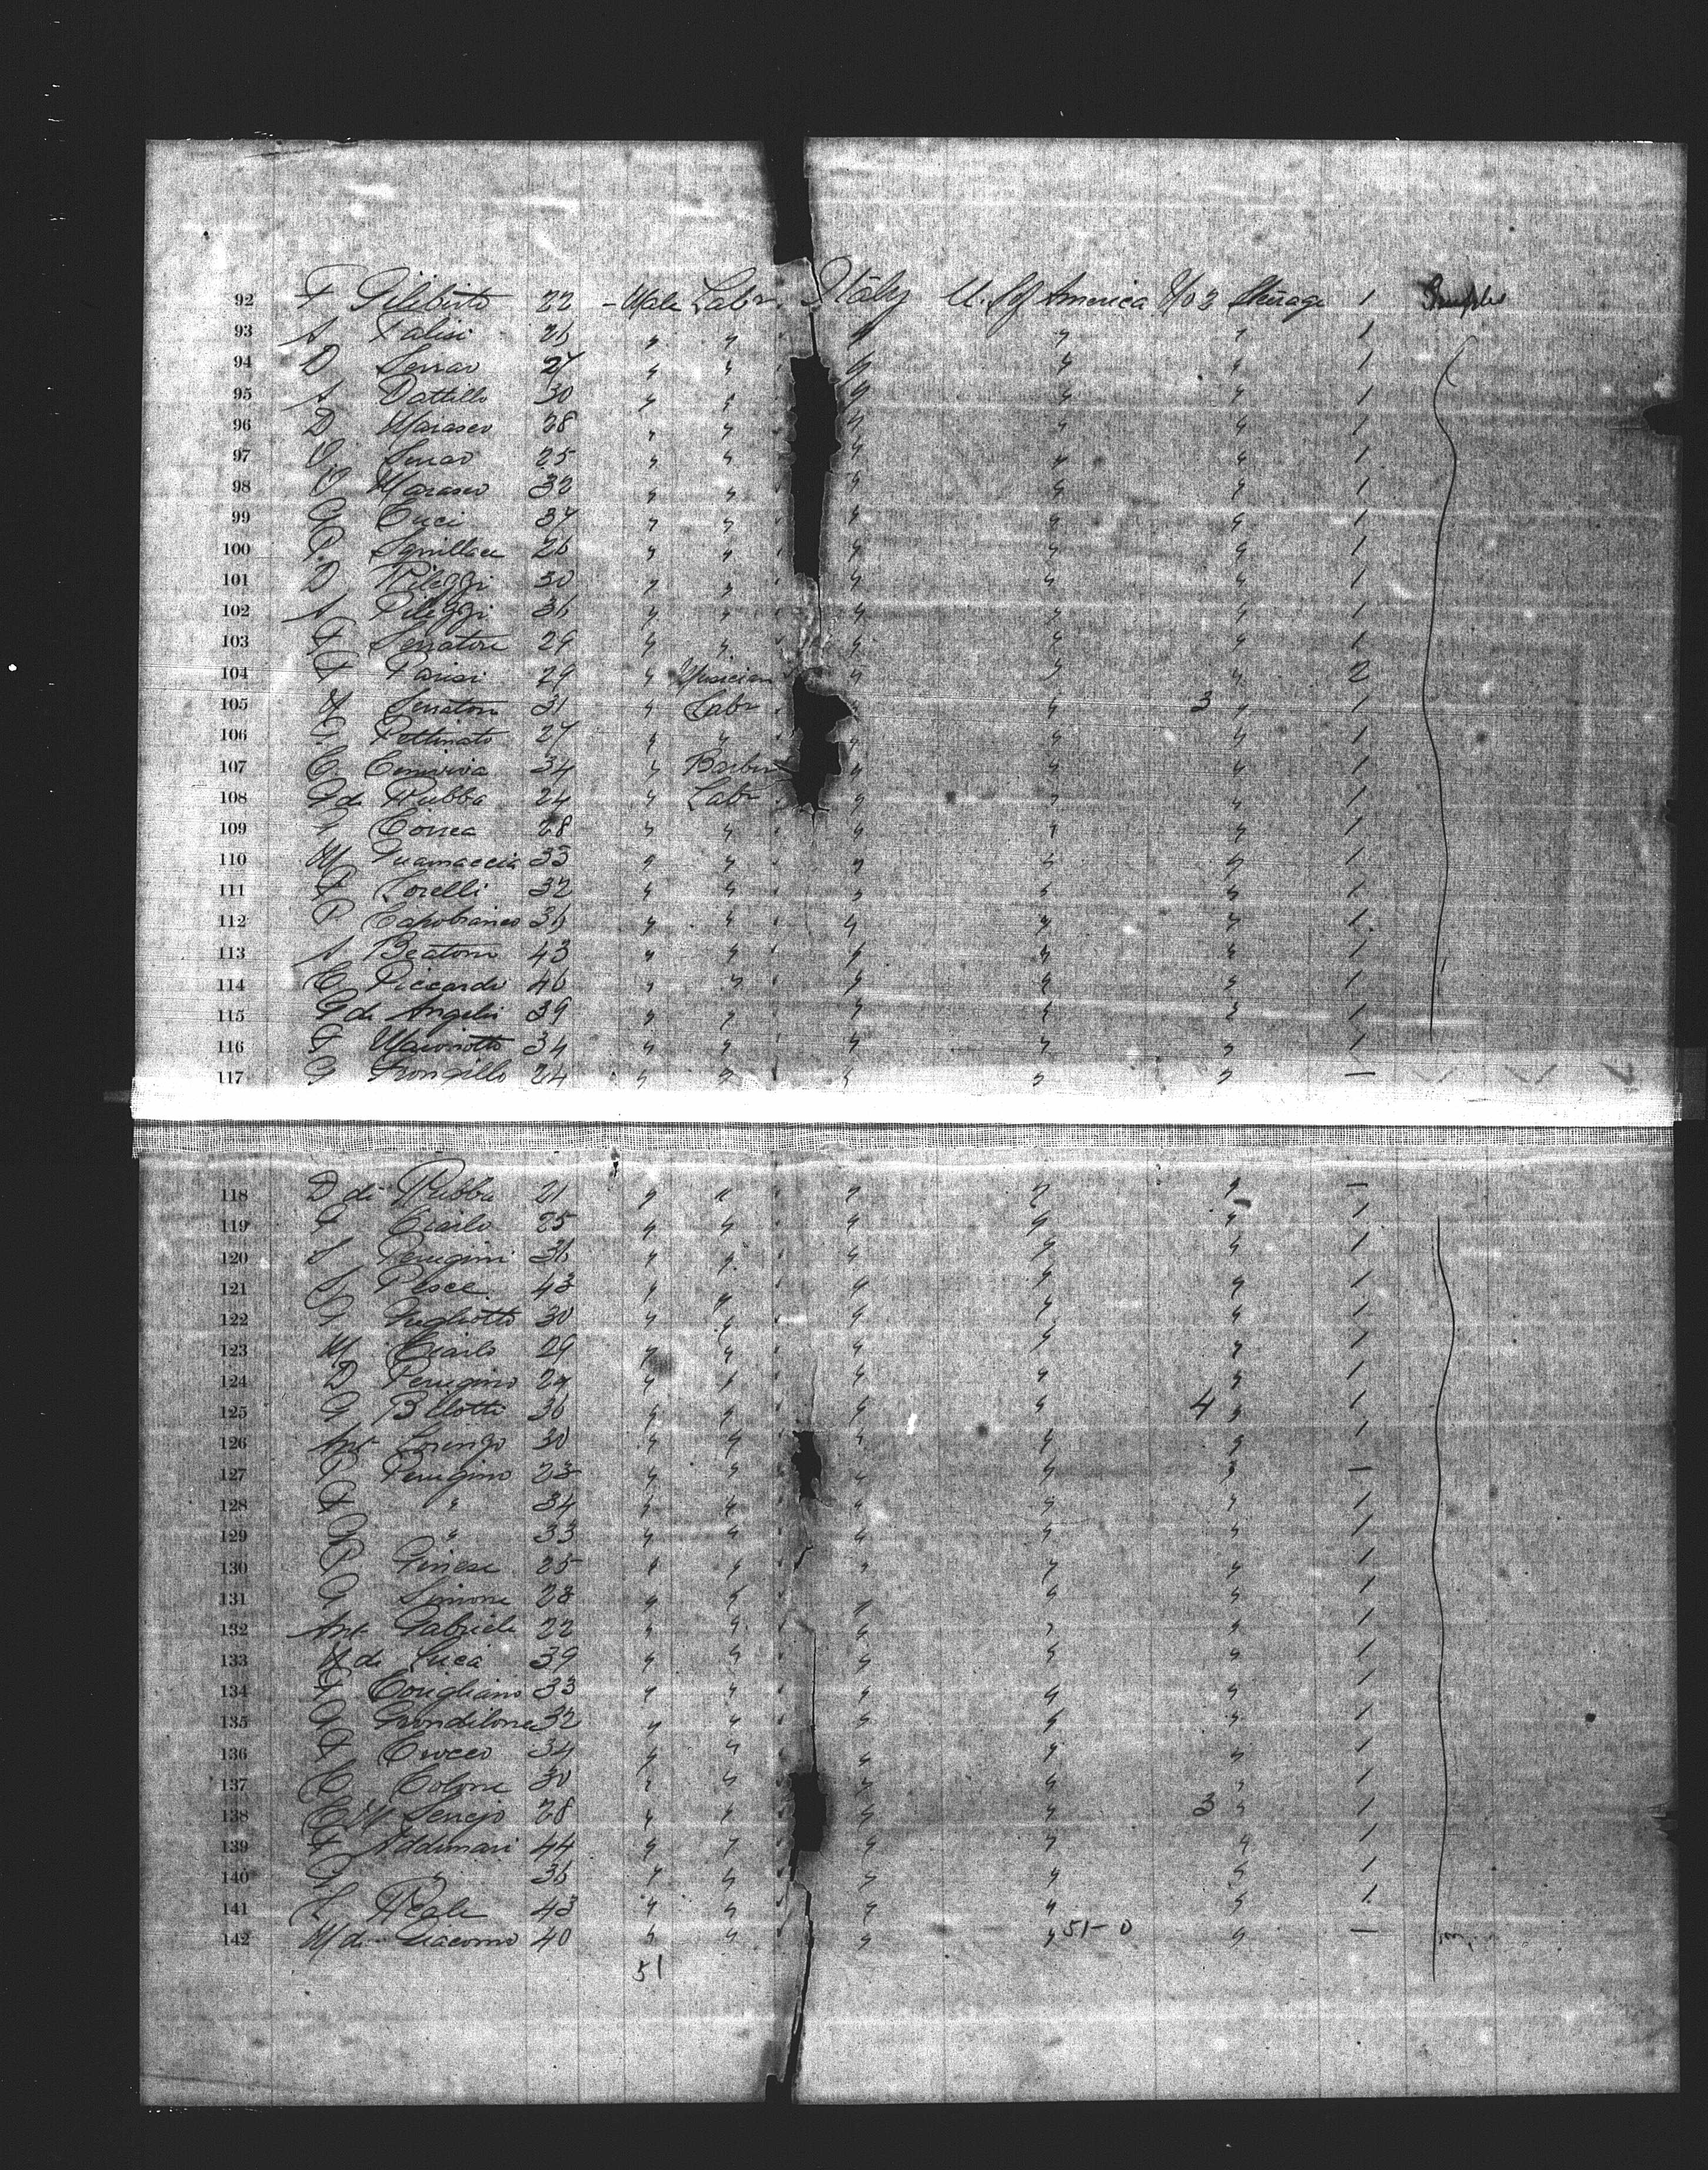 92 F Filiberto 22 - Male Labr. Italy U. S of America No 2 Steerage 1
93 A Falisi 26 " " " " " 1
94 D Serrao 27 " " " " " 1
95 A Dattillo 30 " " " " " 1
96 D Marasco 28 " " " " " 1
97 V Serrao 25 " " " " " 1
98 V Marasco 32 " " " " " 1
99 G Cuci 37 " " " " " 1
100 P Squillace 26 " " " " " 1
101 D Pileggi 30 " " " " " 1
102 A Pileggi 36 " " " " " 1
103 F Serratore 29 " " " " " 1
104 F Parisi 29 " Musician " " " 2
105 Serratore 31 " Labr " 3 " 1
106 G Pettinato 27 " " " " " 1
107 C Cenviva 34 " Barber " " " 1
108 G di Rubba 24 " Labr. " " " 1
109 G Correa 28 " " " " " 1
110 M Guarnaccia 33 " " " " " 1
111 F Lorelli 32 " " " " " 1
112 P Capobianco 36 " " " " " 1
113 A Beatoni 43 " " " " " 1
114 C Piccardi 46 " " " " " 1
115 G di Angelis 39 " " " " " 1
116 F Maionotto 34 " " " " " 1
117 G Frongillo 24 " " " " " —
118 D di Rubba 21 " " " " " —
119 F Ciarlo 25 " " " " " 1
120 S Perugini 36 " " " " " 1
121 S Pesce 43 " " " " " 1
122 G Gugliotto 30 " " " " " 1
123 M Ciarlo 29 " " " " " 1
124 D Perugino 24 " " " " " 1
125 G Bllotti 36 " " " " 4 " 1
126 Ant Lorenzo 30 " " " " " 1
127 P Perugino 23 " " " " " —
128 F " 34 " " " " " 1
129 G " 33 " " " " " 1
130 P Ginese 25 " " " " " 1
131 G Simone 28 " " " " " 1
132 Ant Gabriele 22 " " " " " 1
133 di Luca 39 " " " " " 1
134 F Corigliano 33 " " " " " 1
135 G Grondilone 32 " " " " " 1
136 F Crocco 34 " " " " " 1
137 C Colone 30 " " " " " 1
138 Sensejo 28 " " " " 3 " 1
139 F Addimari 44 " " " " " 1
140 G " 36 " " " " " 1
141 L Reale 43 " " " " " 1
142 M di Giacomo 40 " " " " 51-0 " —
51